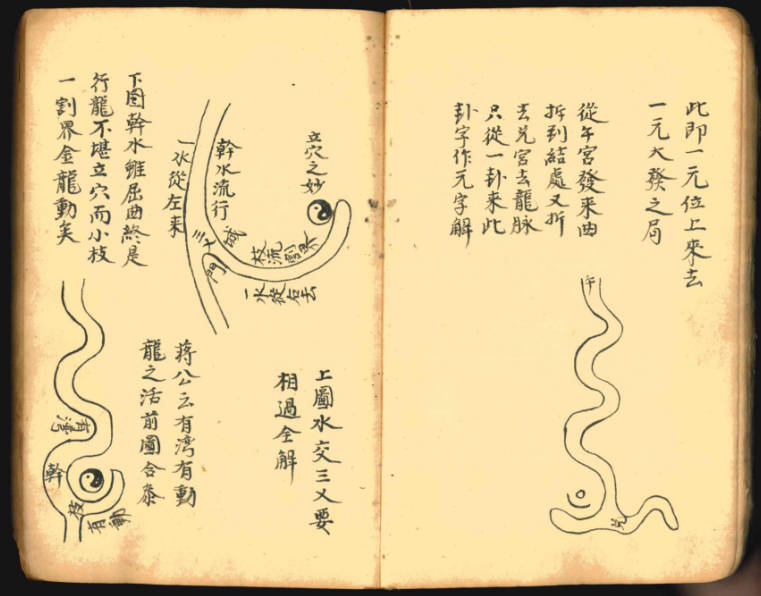 此即一元位上來去
一元大發之局
從午宮發來曲
折到結處又折
去兌宮去龍脉
只從一卦來此
卦字作元字解
午
兌
立穴之妙
幹水流行
一水從左來
三叉
城門
枝流割界
一水從右去
上圖水交三乂要
相過全解
下圖幹水雖屈曲終是
行龍不堪立穴而小枝
一割界金龍動矣
蔣公云有湾有動
龍之活前圖合叅
有灣
幹
枝
有動